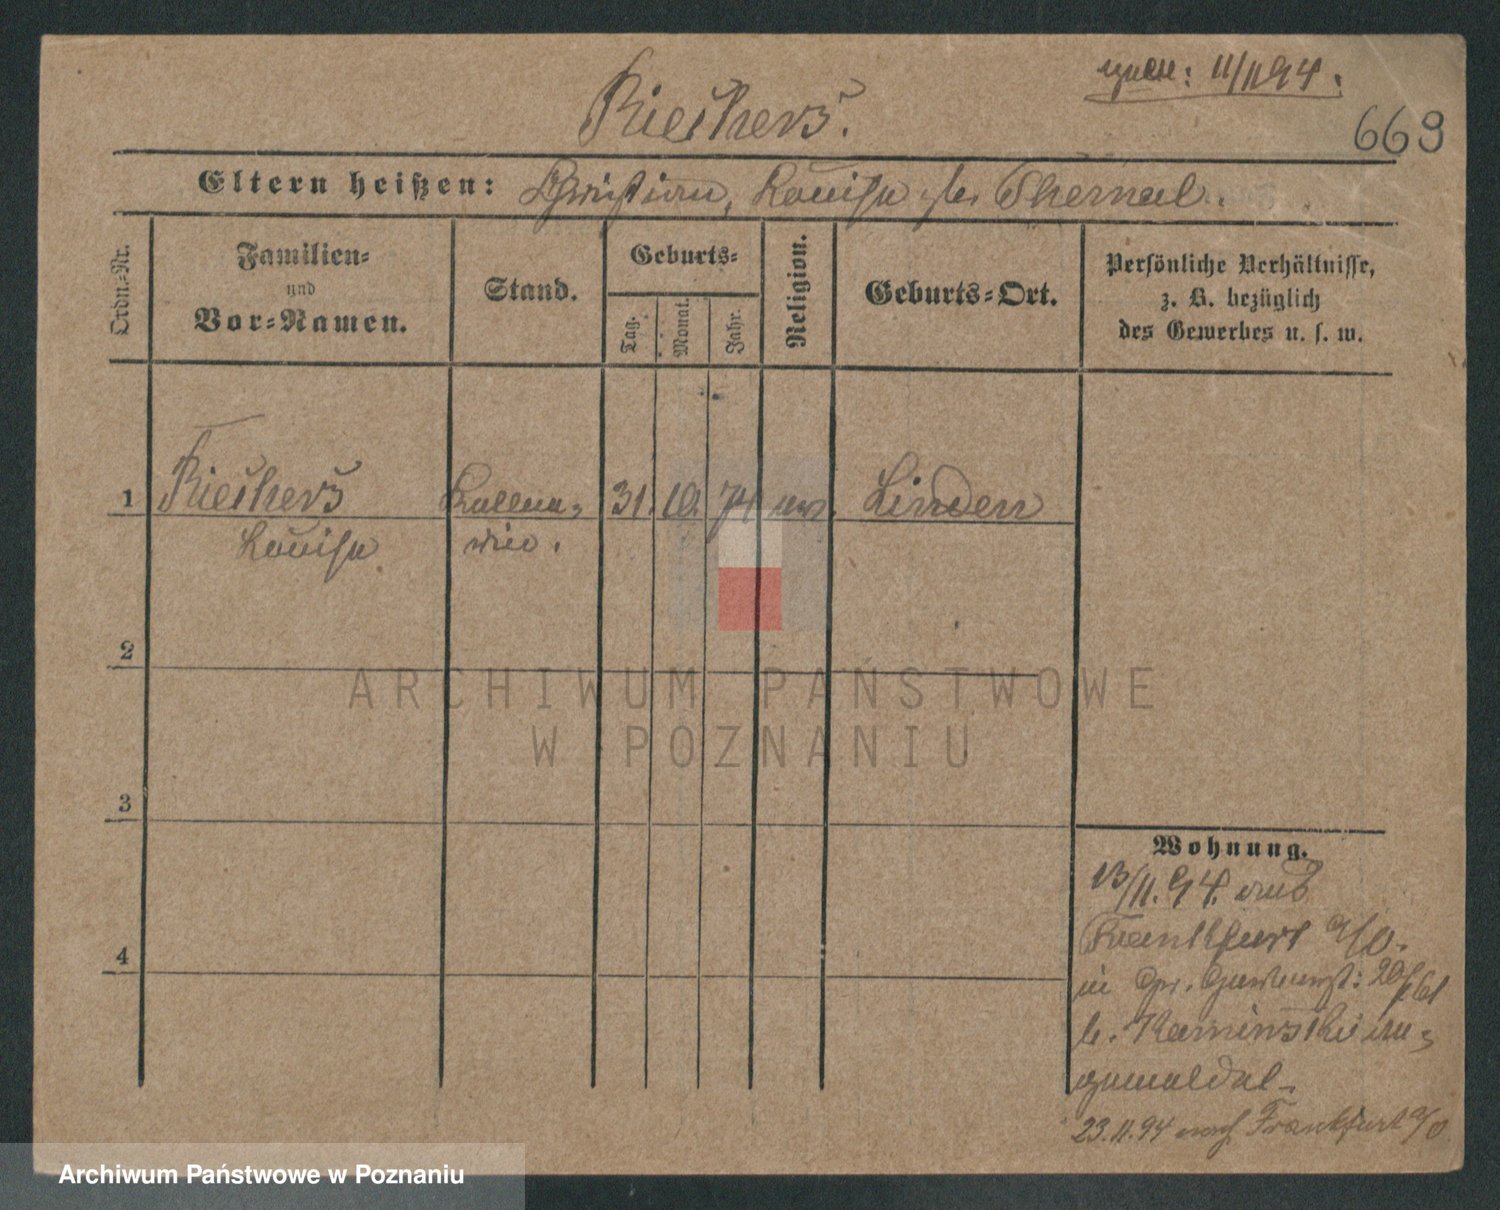 11/11 94.
Riechers.
669
Eltern heißen: Christian, Louise geb.
Ordn.-Nr.
Familien-
und
Vor-Namen.
Stand.
Geburts-
Tag.
Monat.
Jahr.
Religion.
Geburts-Ort.
Persönliche Verhältnisse,
z. B. bezüglich
des Gewerbes u. s. w.
1 Riechers Kellne- 31. 10. 74 ev. Linden
Louise rin.
2
3
4
ARCHIWUM PAŃSTWOWE
W POZNANIU
Wohnung.
13/11. 94. aus
Frankfurt a/O.
in Gr.
b. Kaminski an-
gemeldet.
23.11.94 nach Frankfurt a/O
Archiwum Państwowe w Poznaniu